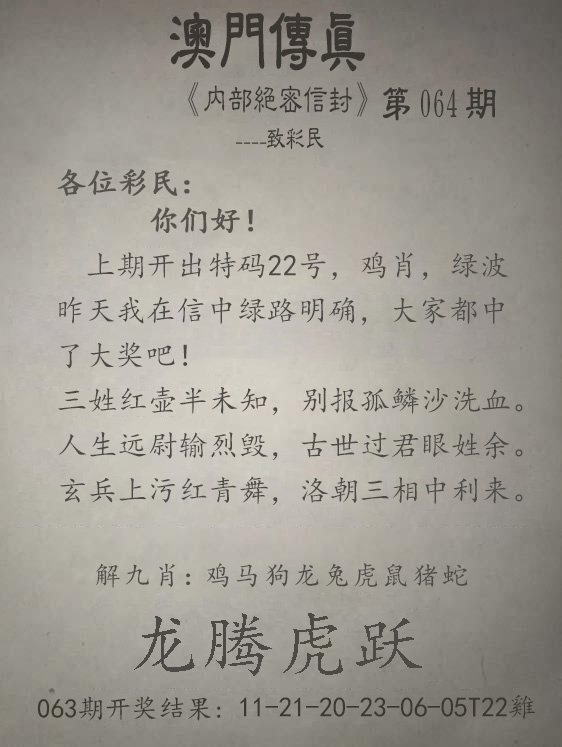 澳門傳真
《内部絕密信封》第064期
----致彩民
各位彩民：
你们好！
上期开出特码22号，鸡肖，绿波
昨天我在信中绿路明确，大家都中
了大奖吧！
三姓红壶半未知，别报孤鳞沙洗血。
人生远尉输烈毁，古世过君眼姓余。
玄兵上污红青舞，洛朝三相中利来。
解九肖：鸡马狗龙兔虎鼠猪蛇
龙腾虎跃
063期开奖结果：11-21-20-23-06-05T22雞